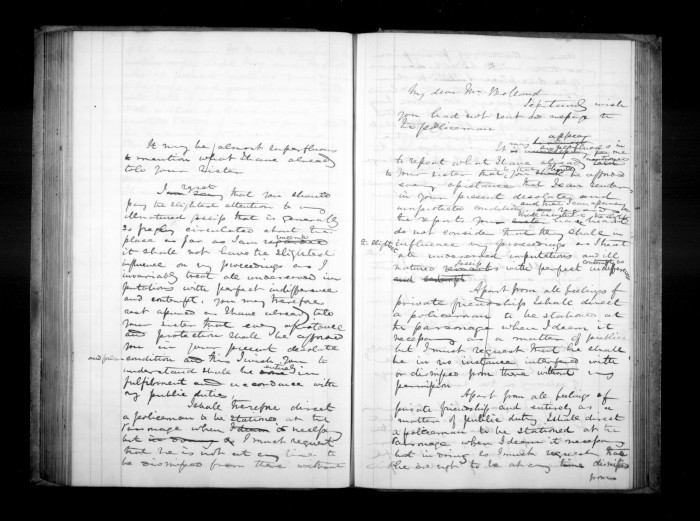 It may be almost superfluous
to mention what I have already
told your sister
I regret that you should
pay the slightest attention to any
illnatured gossip that is generally
so freely circulated about this
place as far as I am
it shall not have the slightest
influence on my proceedings as I
invariably treat all undeserved im
putations with perfect indifference
and contempt. You may therefore
rest assured as I have already told
your sister that every assistance
and protection shall be afforded
you in your present desolate
condition and this I wish you to
understand shall be entirely in
fulfilment and in accordance with
my public duties
I shall therefore direct
a policeman to be stationed at the
Parsonage when I deem it necessary
but in doing so I must request
that he is not at any time to
be dismissed from there without
My dear Mr
I certainly wish
you had not sent so
the policeman
appear
to repeat what I have already
to your sister that you shall be afforded
every assistance that I can render
in your present desolate and
unprotected condition
the reports your sister
do not consider that they shall in
influence my proceedings as I treat
all undeserved imputations and ill
natured gossip with perfect indifference
and contempt
Apart from all feelings of
private friendship I shall direct
a policeman to be stationed at
the parsonage when I deem it
necessary as a matter of public
but I must request that he shall
be in no instance interfered with
or dismissed from there without my
permission
Apart from all feelings of
private friendship and entirely as a
matter of public duty I shall direct
a policeman to be stationed at the
Parsonage when I deem it necessary
but in doing so I must request that
he is not to be at any time dismissed
from